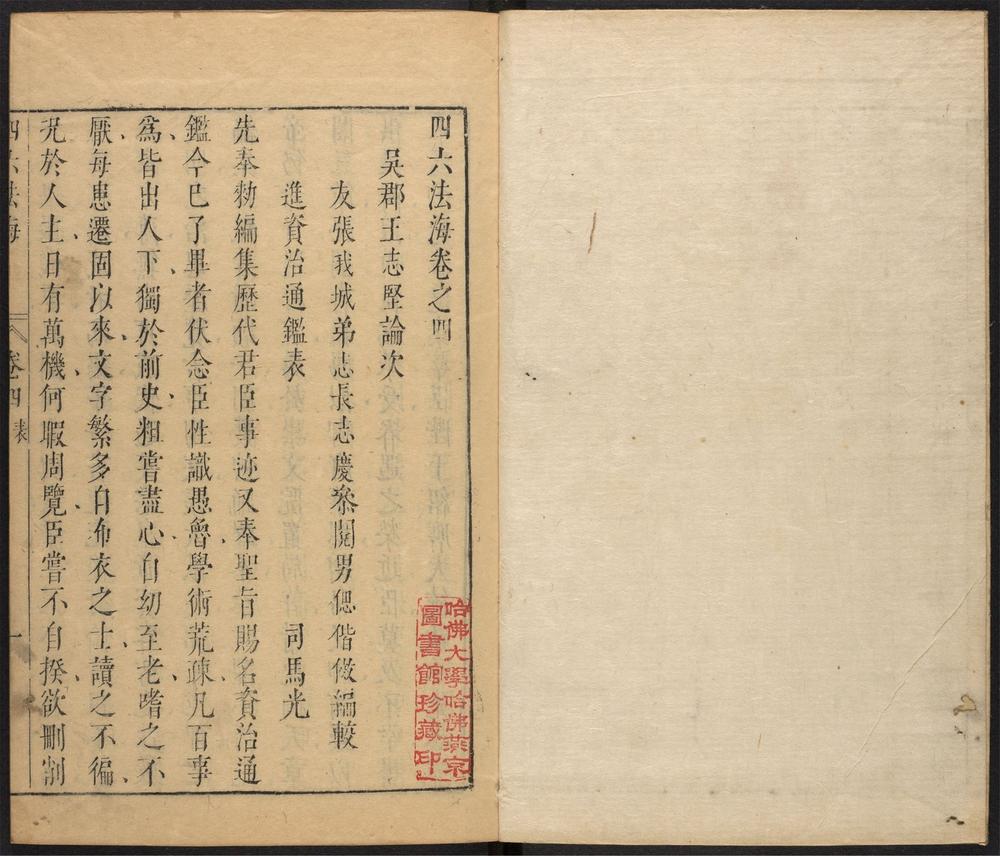 四六法海卷之四
吳郡王志堅論次
友張我城弟志長志慶叅閱男偲偕儆編較
進資治通鑑表 司馬光
先奉勑編集歷代君臣事迹又奉聖旨賜名資治通
鑑今已了畢者伏念臣性識愚魯學術荒疎凡百事
爲皆出人下獨於前史粗嘗盡心自幼至老嗜之不
厭每患遷固以來文字繁多自布衣之士讀之不徧
况於人主日有萬機何暇周覽臣嘗不自揆欲刪削
四六法海 卷四 表 一
哈佛大學哈佛燕京
圖書館珍藏印